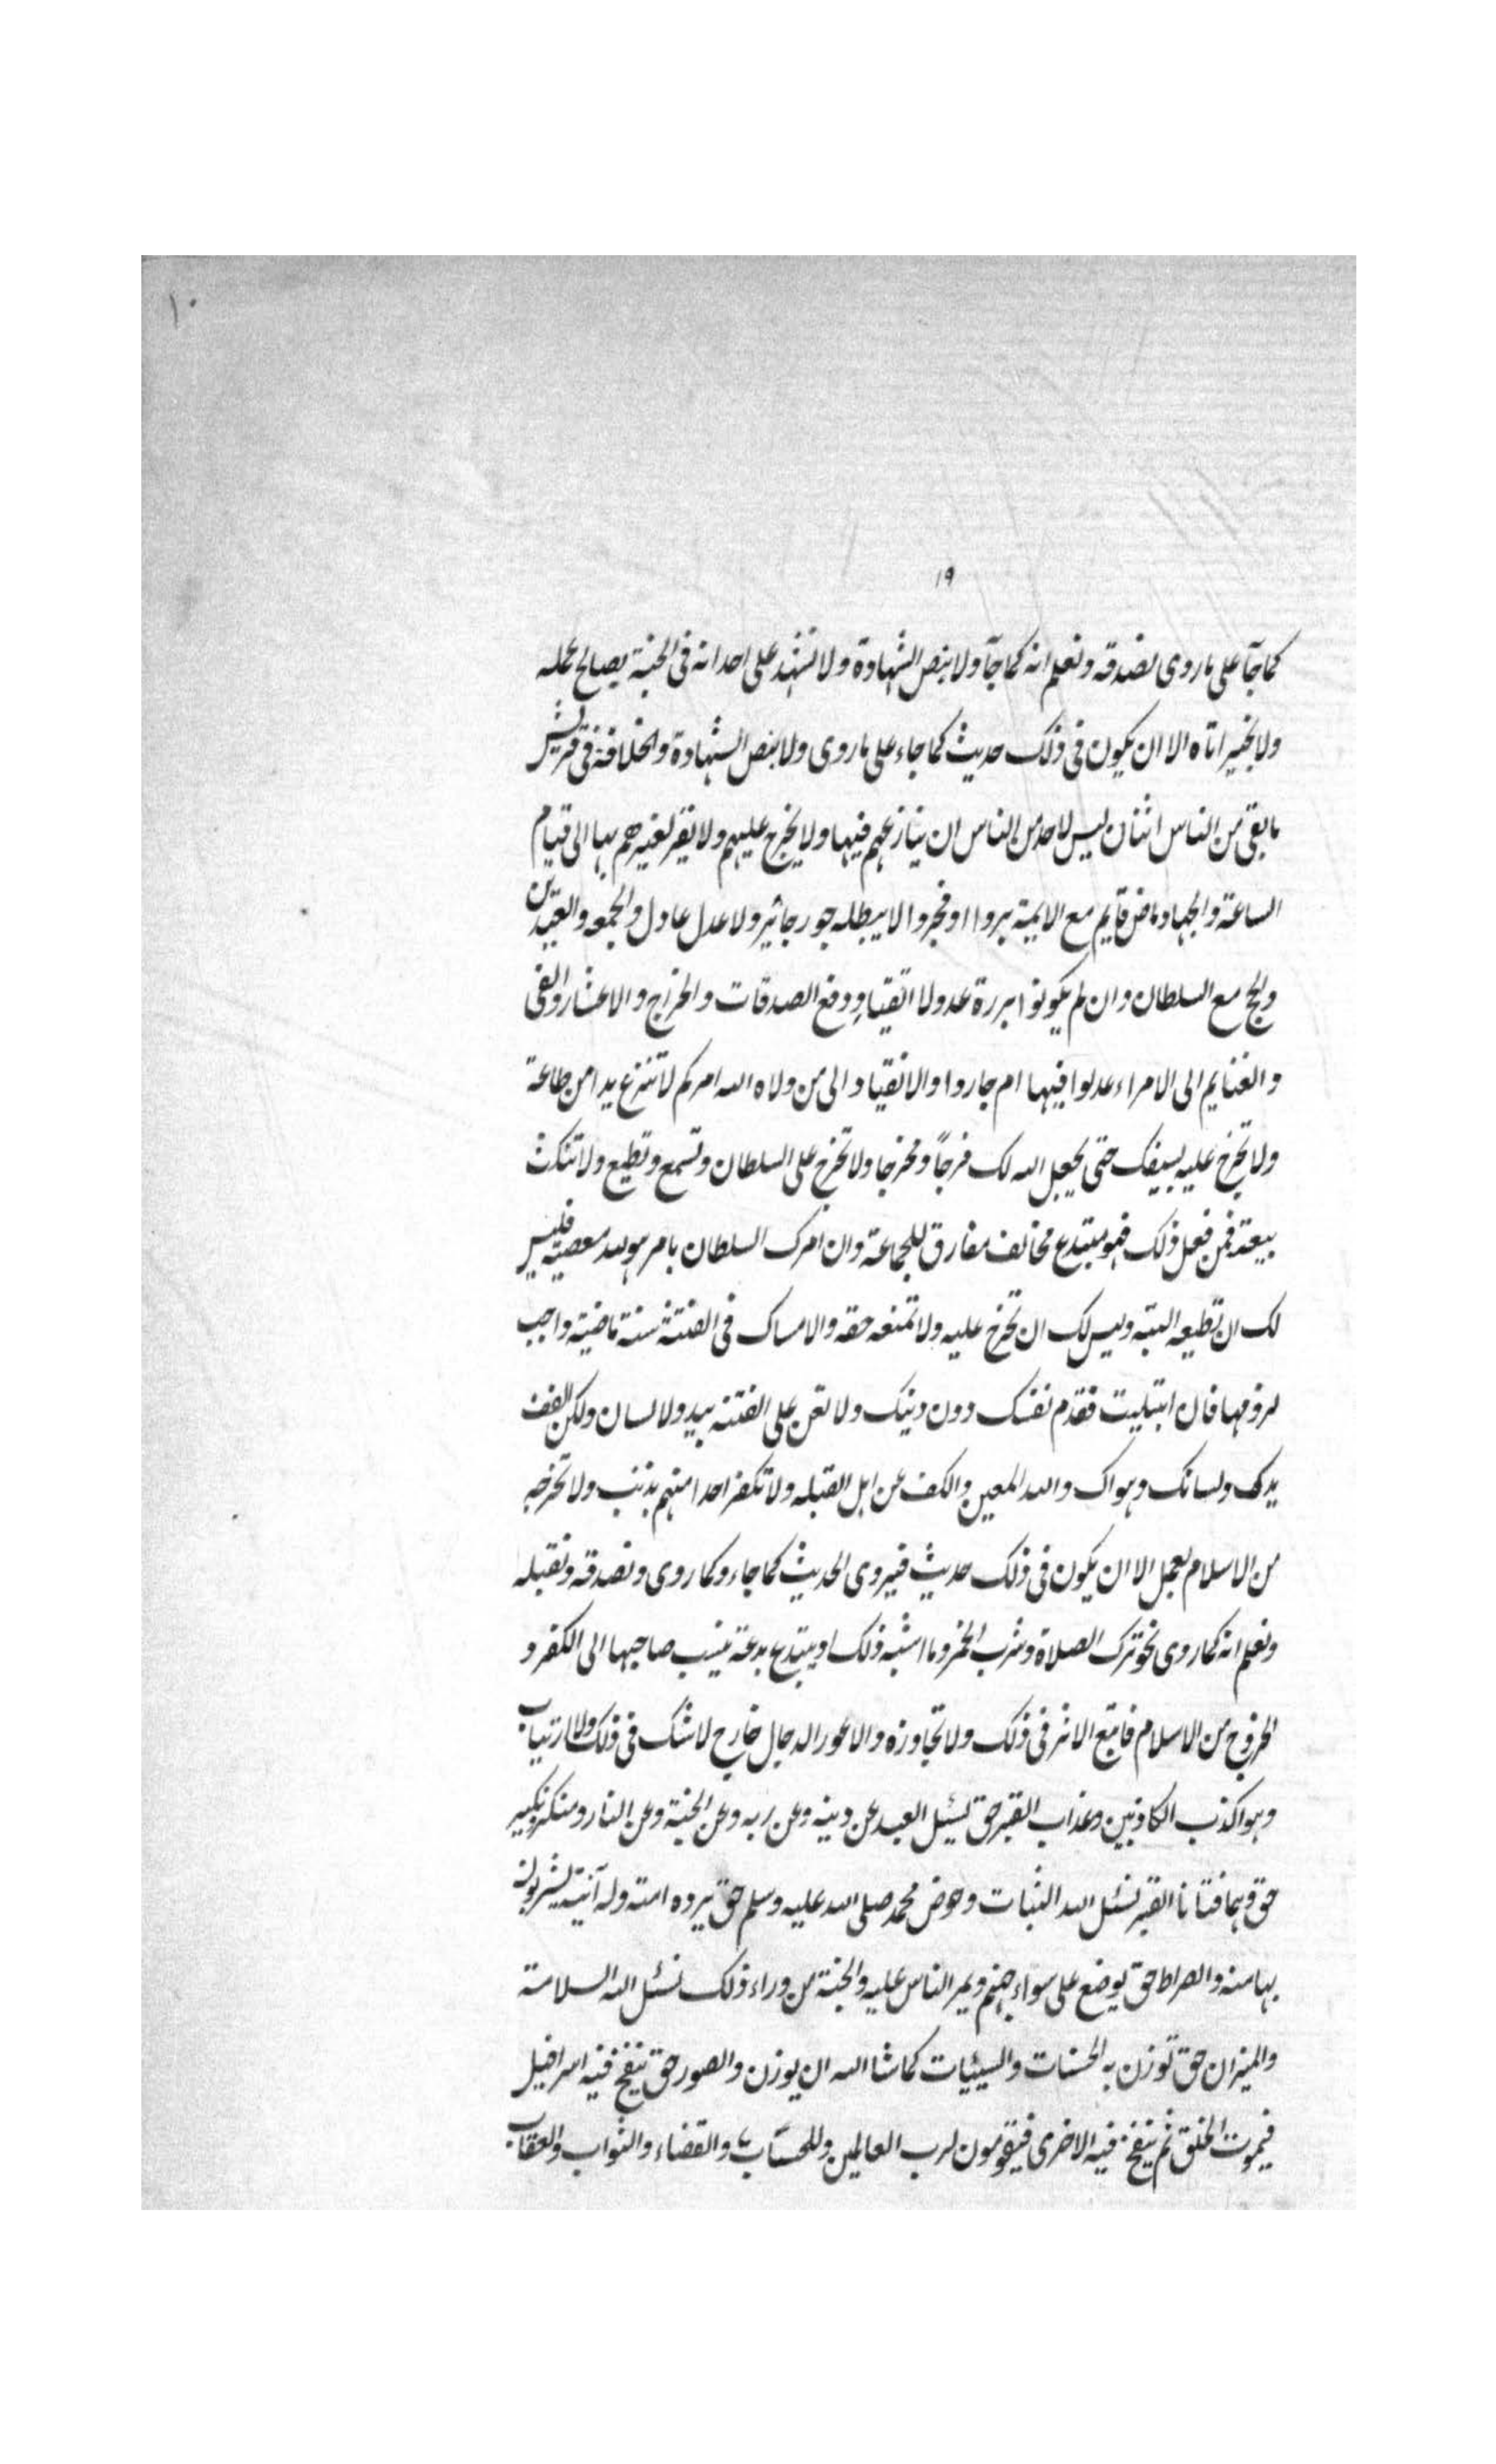 ١٠
١٩
كما جآ على ما روى نصدقه ونعلم انه كما جآ ولا بنص الشهادة ولا نشهد على احد انه فى الجنة بصالح عمله
ولا بخير اتاه الا ان يكون فى ذلك حديث كما جاء على ما روى ولا بنص الشهادة والخلافة فى قريش
ما بقى من الناس اثنان ليس لاحد من الناس ان ينازعهم فيها ولا يخرج عليهم ولا نقر لغيرهم بها الى قيام
الساعة والجهاد ماض قايم مع الايمة بروا او فجروا لا يبطله جور جائر ولا عدل عادل والجمعه والعيدين
والحج مع السلطان وان لم يكونوا بررة عدولا اتقياء ودفع الصدقات والخراج والاعشار والفى
والغنايم الى الامراء عدلوا فيها ام جاروا والانقياد الى من ولاه الله امركم لا تنزع يدا من طاعة
ولا تخرج عليه بسيفك حتى يجعل الله لك فرجاً ومخرجا ولا تخرج على السلطان وتسمع وتطيع ولا تنكث
بيعته فمن فعل ذلك فهو مبتدع مخالف مفارق للجماعة وان امرك السلطان بامر هو لله معصية فليس
لك ان تطيعه البتة وليس لك ان تخرج عليه ولا تمنعه حقه والامساك فى الفتنة سنة ماضية واجب
لزومها فان ابتليت فقدم نفسك دون دينك ولا تعن على الفتنه بيد ولا لسان ولكن اكفف
يدك ولسانك وهواك والله المعين والكف عن اهل القبله ولا تكفر احدا منهم بذنب ولا تخرجه
من الاسلام بعمل الا ان يكون فى ذلك حديث فيروى الحديث كما جاء وكما روى ونصدقه ونقبله
ونعلم انه كما روى نحو ترك الصلاة وشرب الخمر وما اشبه ذلك او يبتدع بدعة ينسب صاحبها الى الكفر و
الخروج من الاسلام فاتبع الاثر فى ذلك ولا تجاوزه والاعور الدجال خارج لا شك فى ذلك ولا ارتياب
وهو اكذب الكاذبين وعذاب القبر حق يسئل العبد عن دينه وعن ربه وعن الجنة وعن النار ومنكر ونكير
حق وهما فتانا القبر نسئل الله الثبات وحوض محمد صلى الله عليه وسلم حق يرده امته وله آنية يشربون
بها منه والصراط حق يوضع على سواء جهنم ويمر الناس عليه والجنة من وراء ذلك نسئل الله السلامة
والميزان حق توزن به الحسنات والسيئات كما شا الله ان يوزن والصور حق ينفخ فيه اسرافيل
فيموت الخلق ثم ينفخ فيه الاخرى فيقومون لرب العالمين وللحساب والقضاء والثواب والعقاب